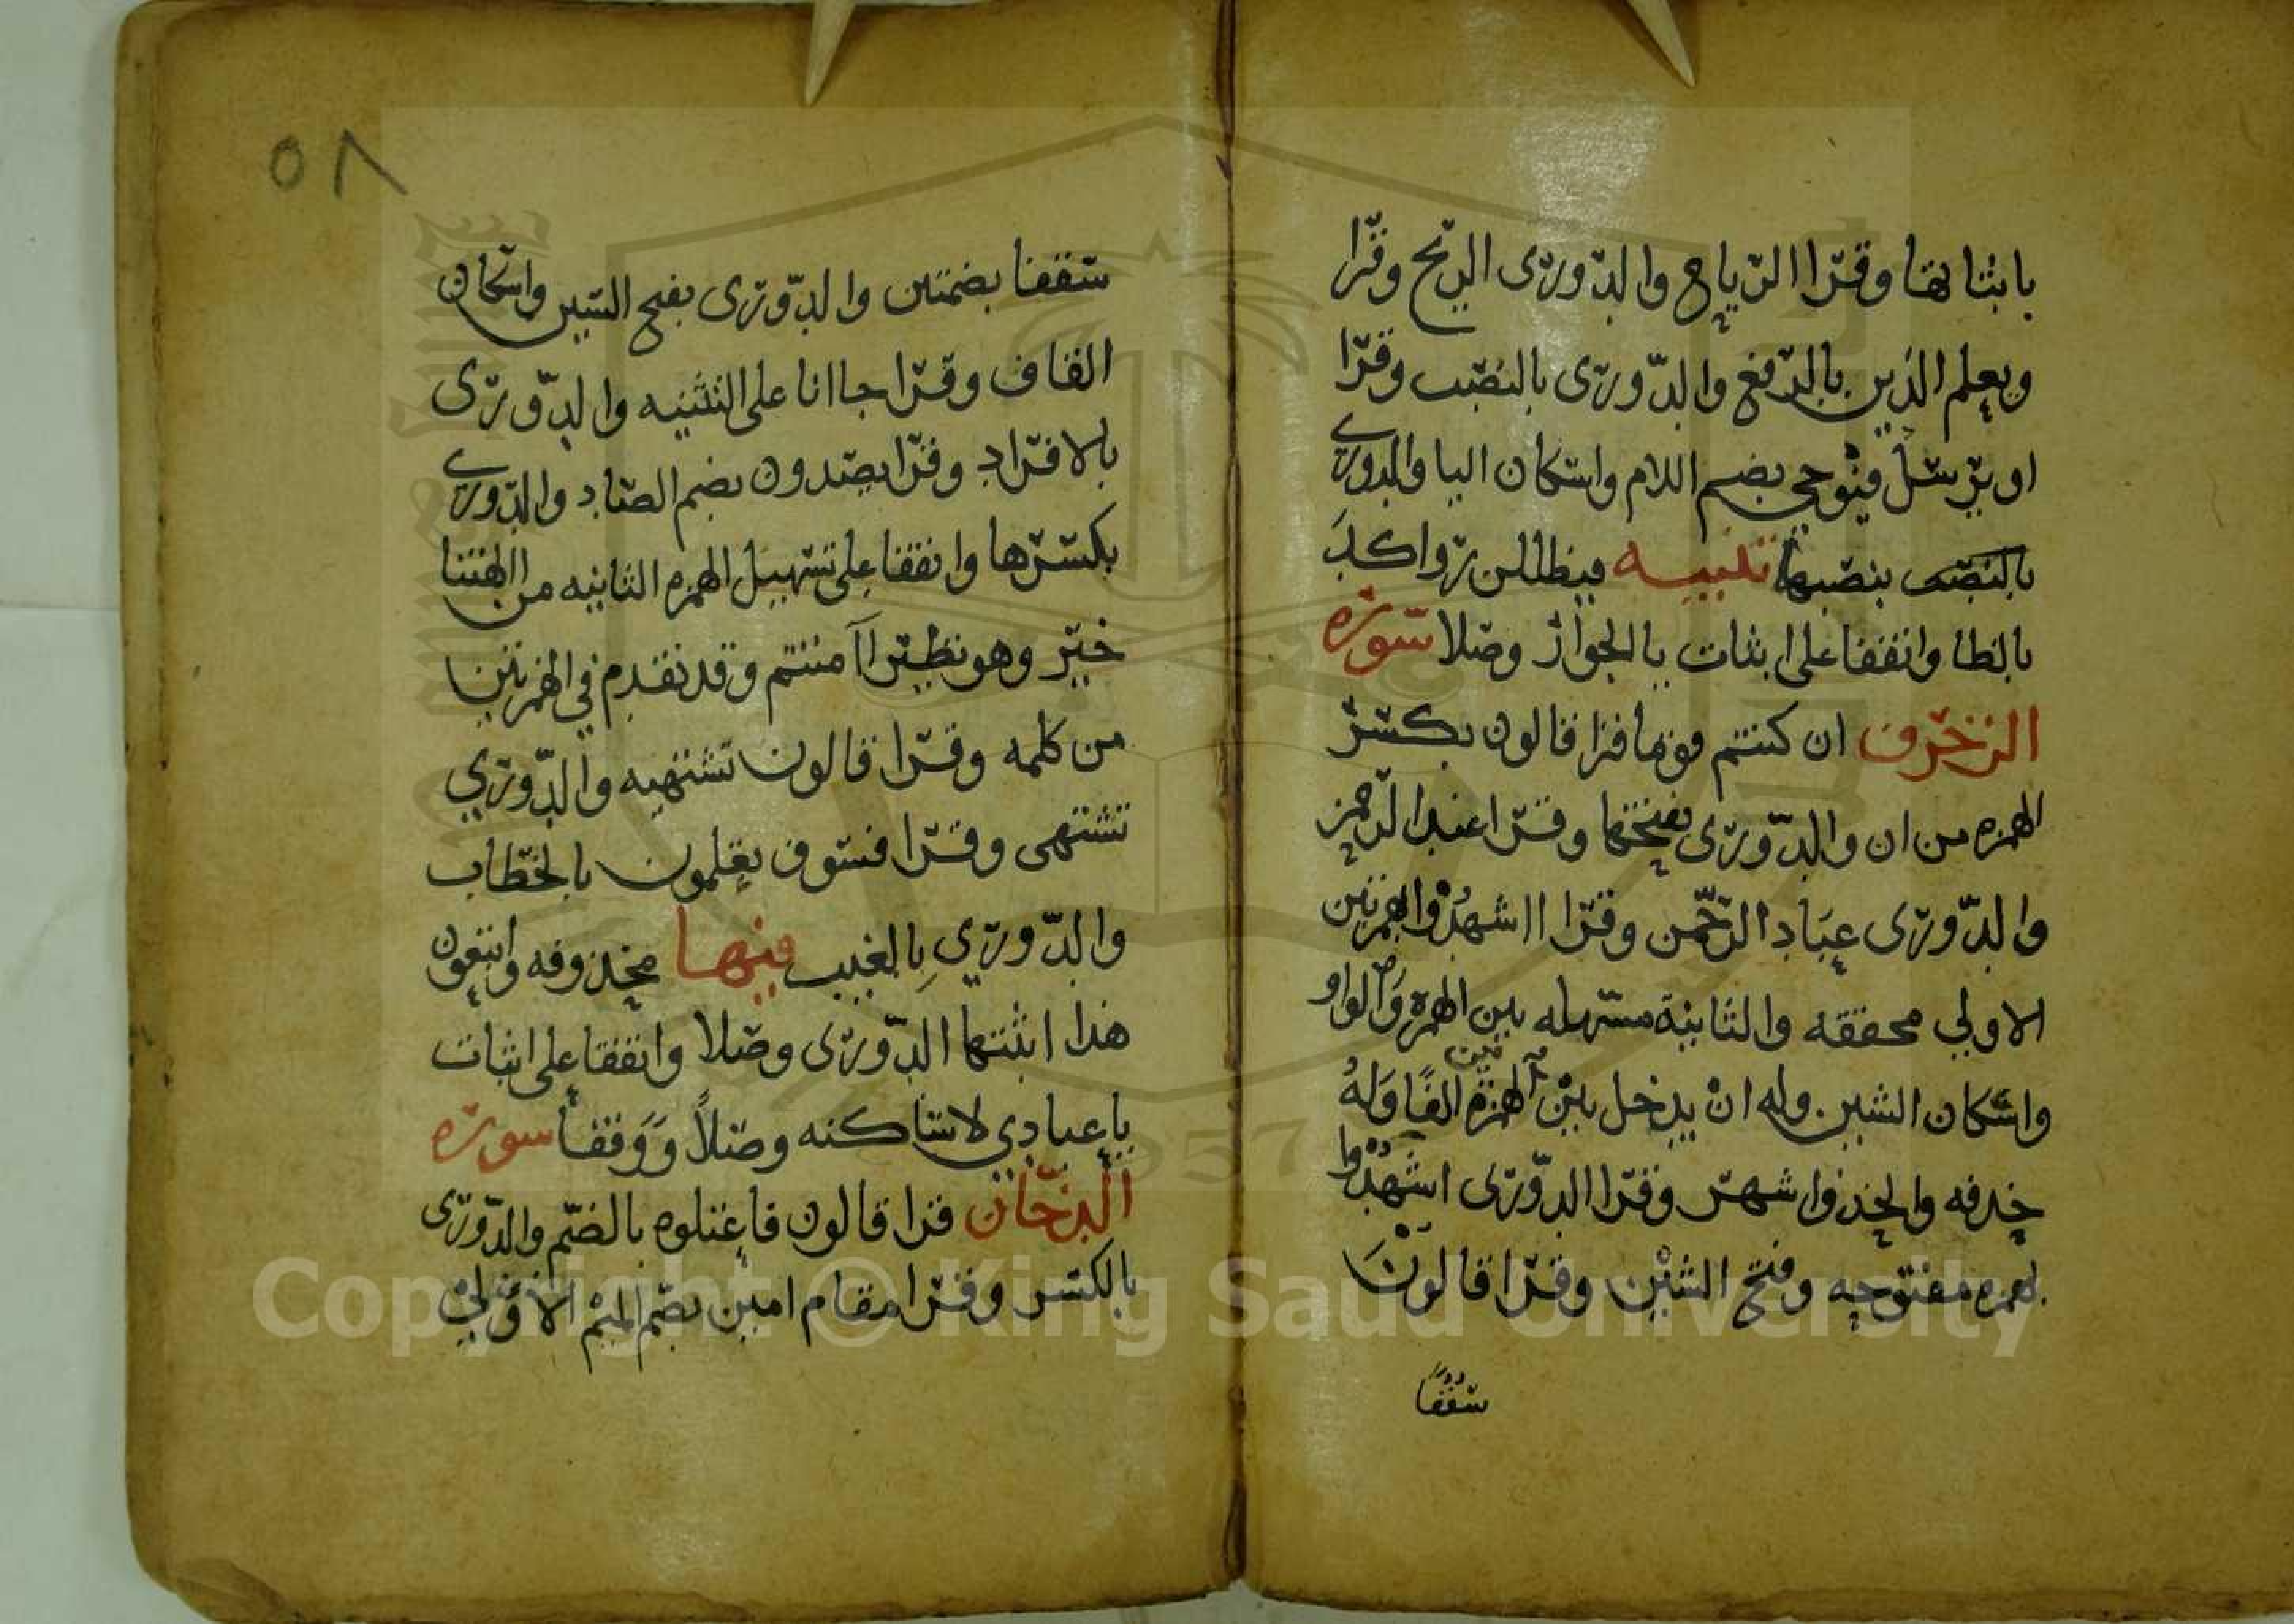 باثباتها وقرا الرياح والدورى الريح وقرا
ويعلم الذين بالرفع والدورى بالنصب وقرا
او يرسل فيوحي بضم اللام واسكان اليا والدوري
بالنصب بنصبها تنبيه فيظللن رواكد
بالظا واتفقا على اثبات يا الجوار وصلا سوره
الزخرف ان كنتم قوما قرا قالون بكسر
الهمزه من ان والدورى بفتحها وقرا عند الرحمن
والدورى عباد الرحمن وقرا ااشهدوا بهمزتين
الاولي محققه والثانية مسهله بين الهمزة والواو
واسكان الشين وله ان يدخل بين الهمزتين الفا وله
حذفه والحذف اشهر وقرا الدورى اشهدوا
بهمزه مفتوحه وفتح الشين وقرا قالون
سقفا
٥٨
سقفا بضمتين والدورى بفتح السين واسكان
القاف وقرا جاانا على التثنيه والدورى
بالافراد وقرا يصدون بضم الصاد والدوري
بكسرها واتفقا على تسهيل الهمزه الثانيه من االهتنا
خير وهو نظير اآمنتم وقد تقدم في الهمزتين
من كلمه وقرا قالون تشتهيه والدوري
تشتهى وقرا فسوف يعلمون بالخطاب
والدوري بالغيب فيها محذوفه واتبعون
هذا اثبتها الدورى وصلا واتفقا على اثبات
يا عبادي لا ساكنه وصلا ووقفا سوره
الدخان قرا قالون فاعتلوه بالضم والدورى
بالكسر وقرا مقام امين بضم الميم الاولي
Copyright © King Saud University
1957